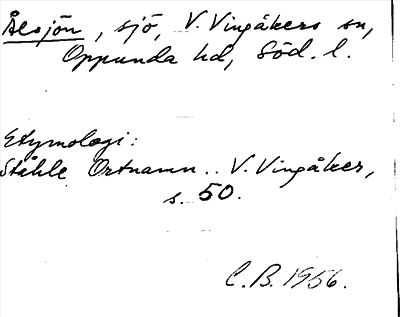 Ålsjön, sjö, V. Vingåkers sn,
Oppunda hd, Söd. l.
Etymologi:
Ståhle Ortnamn .. V. Vingåker,
s. 50.
C.B. 1956.